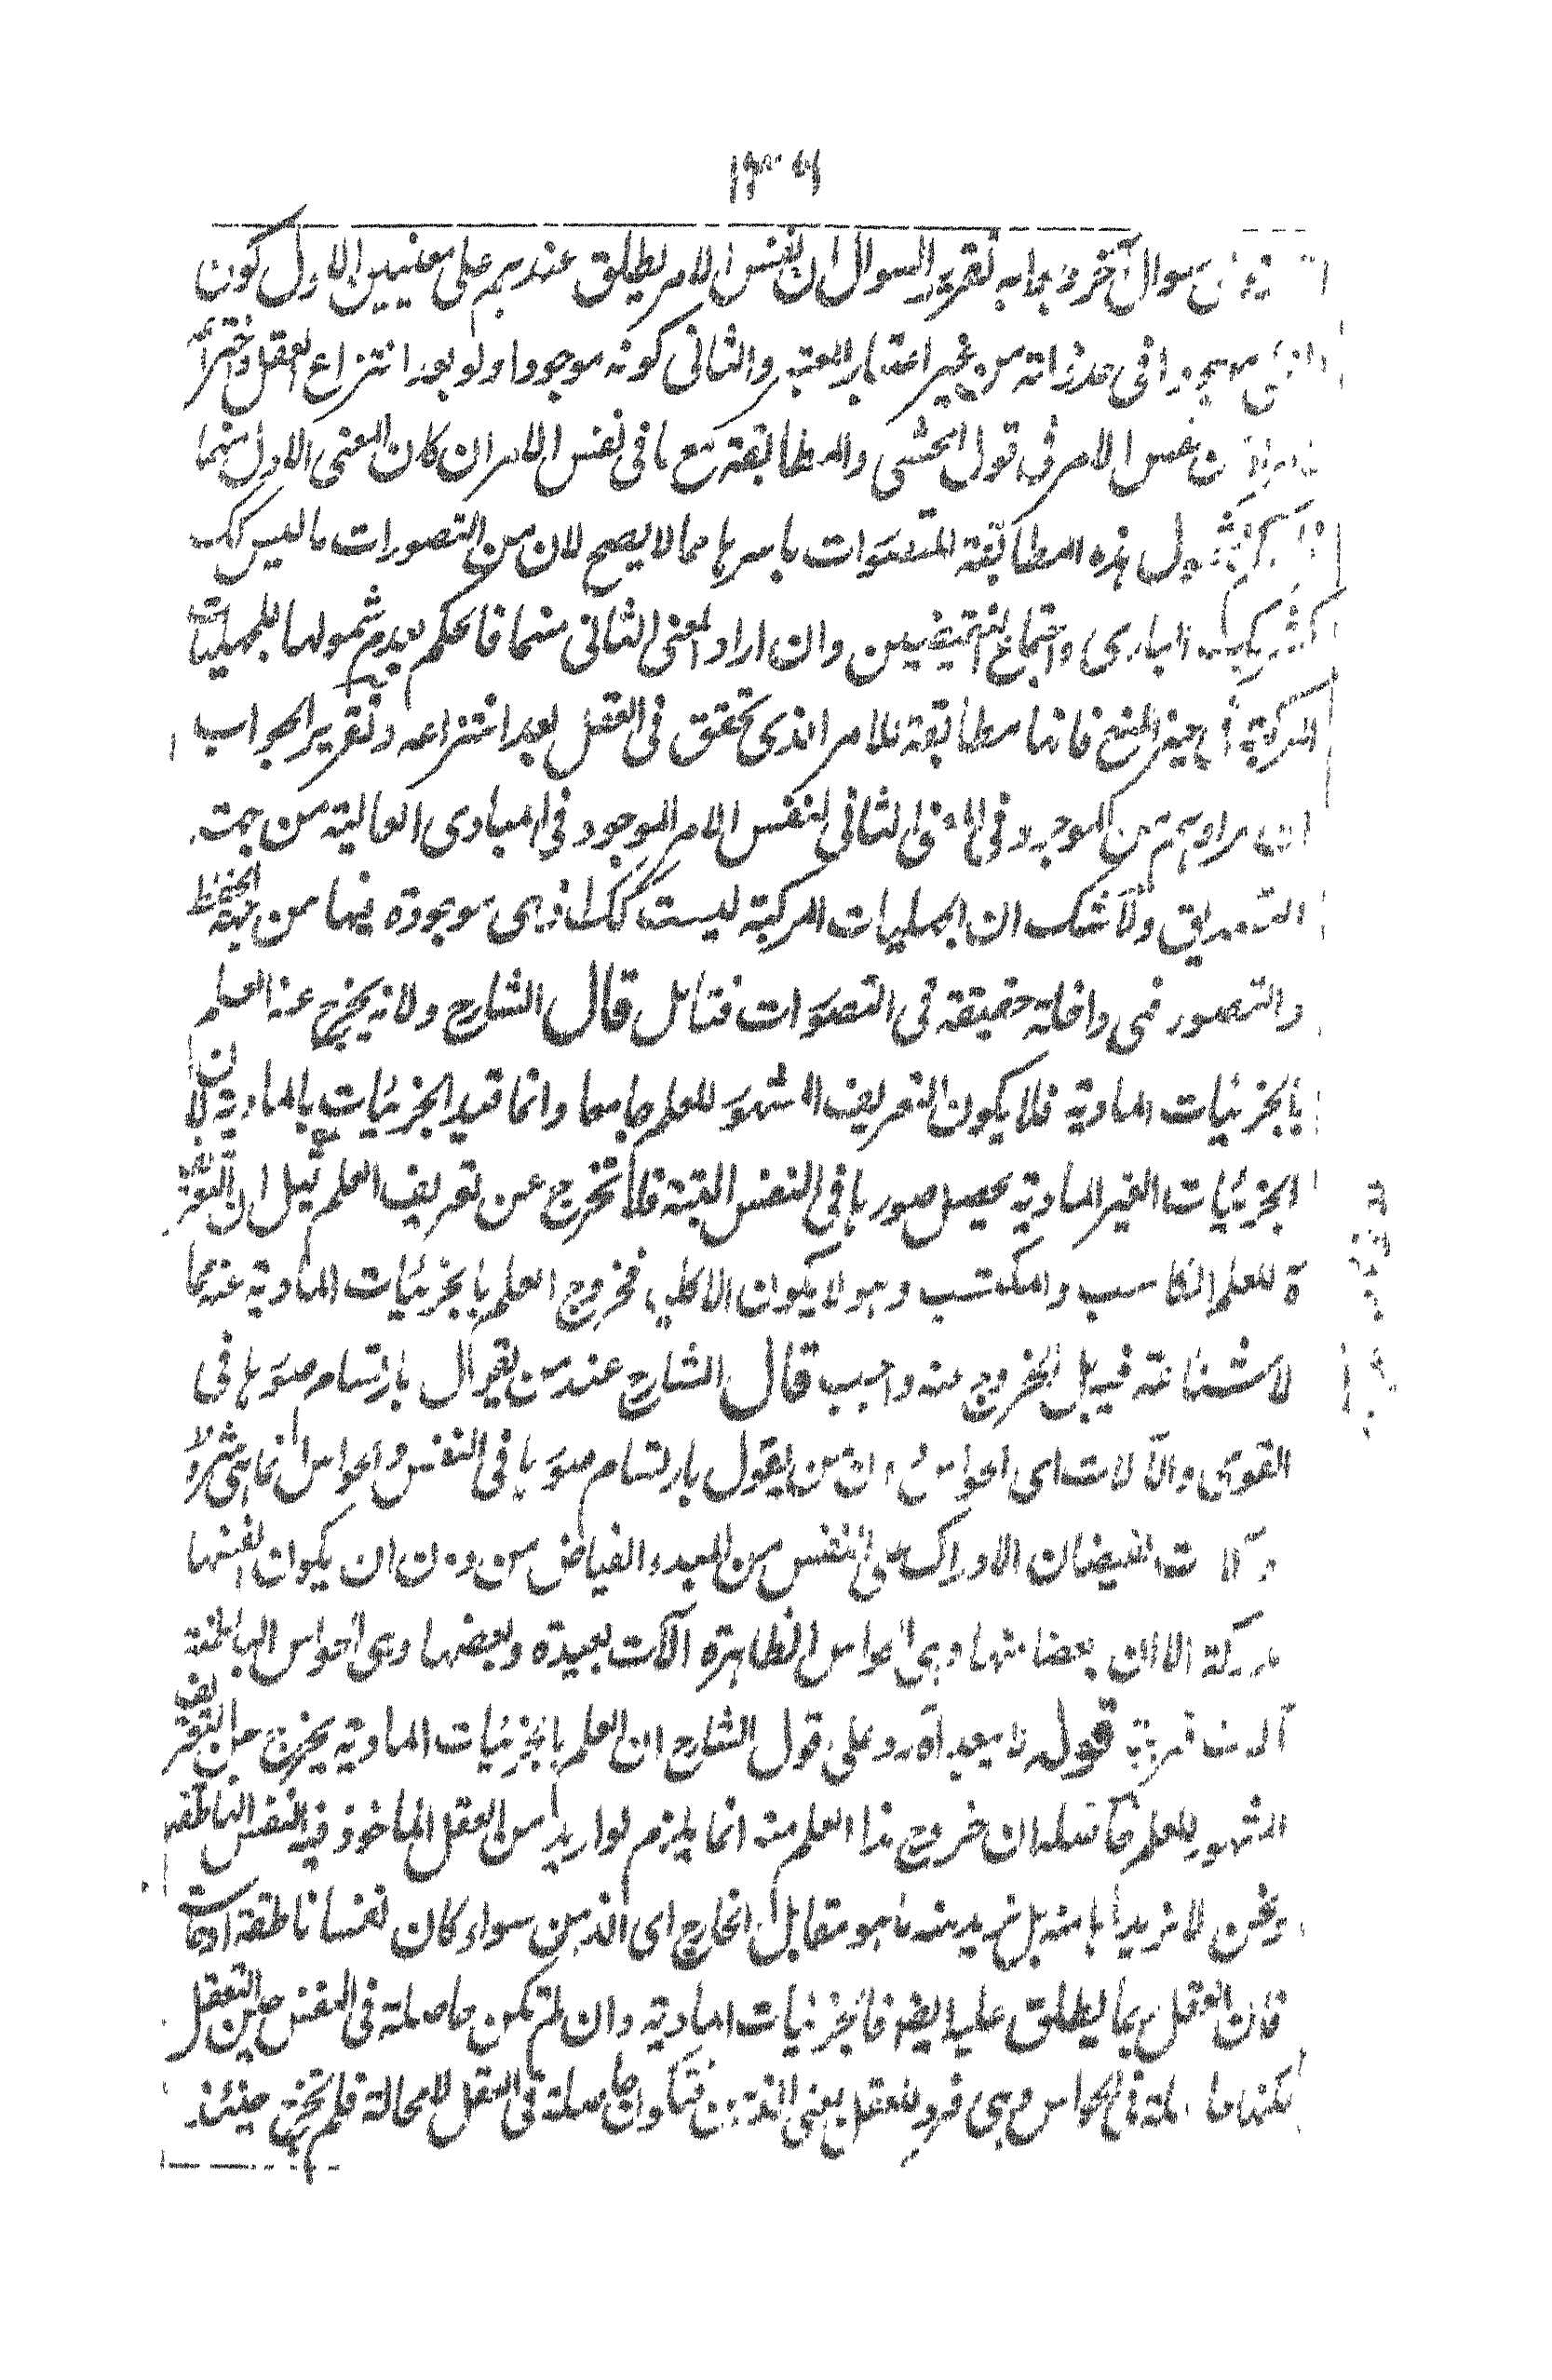 سوال آخر وجوابه تقرير السوال ان نفس الامر يطلق عندهم على معنيين الاول كون
موجودا فى حد ذاته من غير اعتبار المعتبر والثانى كونه موجودا ولو بعد انتزاع العقل واختراعه
نفس الامر فى قول المحشى والمطابقة مع ما فى نفس الامر ان كان المعنى الاول منهما
هذه المطابقة للتصورات باسرها مما لا يصح لان من التصورات ما ليس كك
كشريك البارى واجتماع النقيضين وان اراد المعنى الثانى منهما فالحكم بعدم شمولها للجهليات
المركبة فى حيز المنع فانها مطابقة للامر الذى تحقق فى العقل بعد انتزاعه وتقرير الجواب
ان مرادهم من الموجود فى المعنى الثانى لنفس الامر الموجود فى المبادى العالية من جهة
التصديق ولا شك ان الجهليات المركبة ليست كك اذ هى موجودة فيها من جهة الحفظ
والتصور فهى داخلة حقيقة فى التصورات فتامل قال الشارح ولانه يخرج عنه العلم
بالجزئيات المادية فلا يكون التعريف المشهور للعلم جامعا وانما قيد الجزئيات بالمادية لان
الجزئيات الغير المادية يحصل صورها فى النفس البتة فلا تخرج عن تعريف العلم قيل ان التعريف
للعلم الكاسب والمكتسب وهو لا يكون الا كليا فخروج العلم بالجزئيات المادية عنه مما
لا شناعة فيه بل الخروج عنه واجب قال الشارح عند من يقول بارتسام صورها فى
القوى والآلات اى الحواس من يقول بارتسام صورها فى النفس والحواس انما هى شروط
وآلات لفيضان الادراك على النفس من المبدء الفياض من دون ان يكون انفسها
مدركة الا ان بعضا منها وهى الحواس الظاهرة آلات بعيدة وبعضها وهى الحواس الباطنة
آلات قريبة قوله لا يبعد آه رد على قول الشارح ان العلم بالجزئيات المادية يخرج عن التعريف
المشهور للعلم حاصله ان خروج هذا العلم منه انما يلزم لو اريد من العقل الماخوذ فيه النفس الناطقة
ونحن لا نريدها منه بل نريد منه ما هو مقابل الخارج اى الذهن سواء كان نفسا ناطقة او حاسة
فان العقل ربما يطلق عليه ايضا فالجزئيات المادية وان لم تكن حاصلة فى النفس حين التعقل
لكنها حاصلة فى الحواس وهى فرد للعقل بمعنى الذهن فتكون حاصلة فى العقل لا محالة فلم تخرج حينئذ